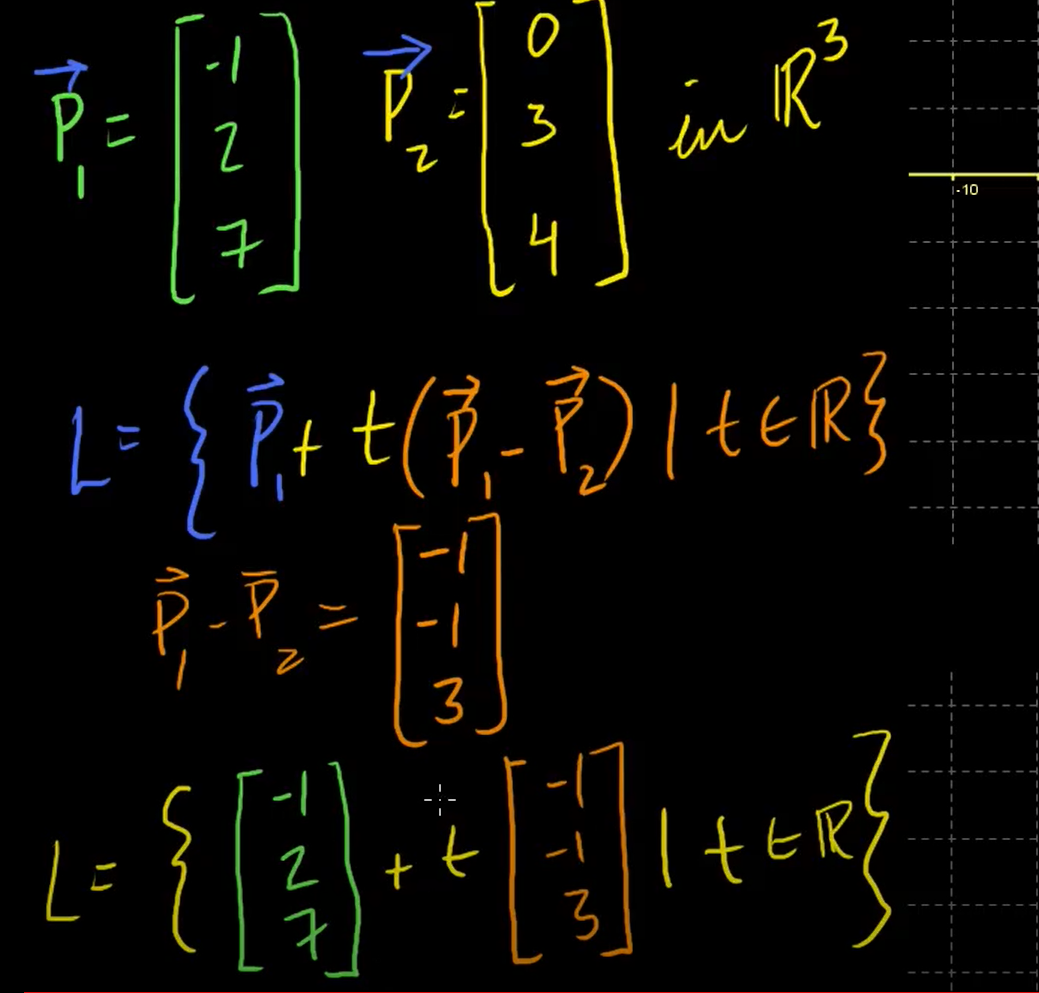 P⃗₁ = [-1 2 7] P⃗₂ = [0 3 4] in ℝ³
-10
L = { P⃗₁ + t(P⃗₁ - P⃗₂) | t ∈ ℝ }
P⃗₁ - P̅₂ = [-1 -1 3]
L = { [-1 2 7] + t [-1 -1 3] | t ∈ ℝ }